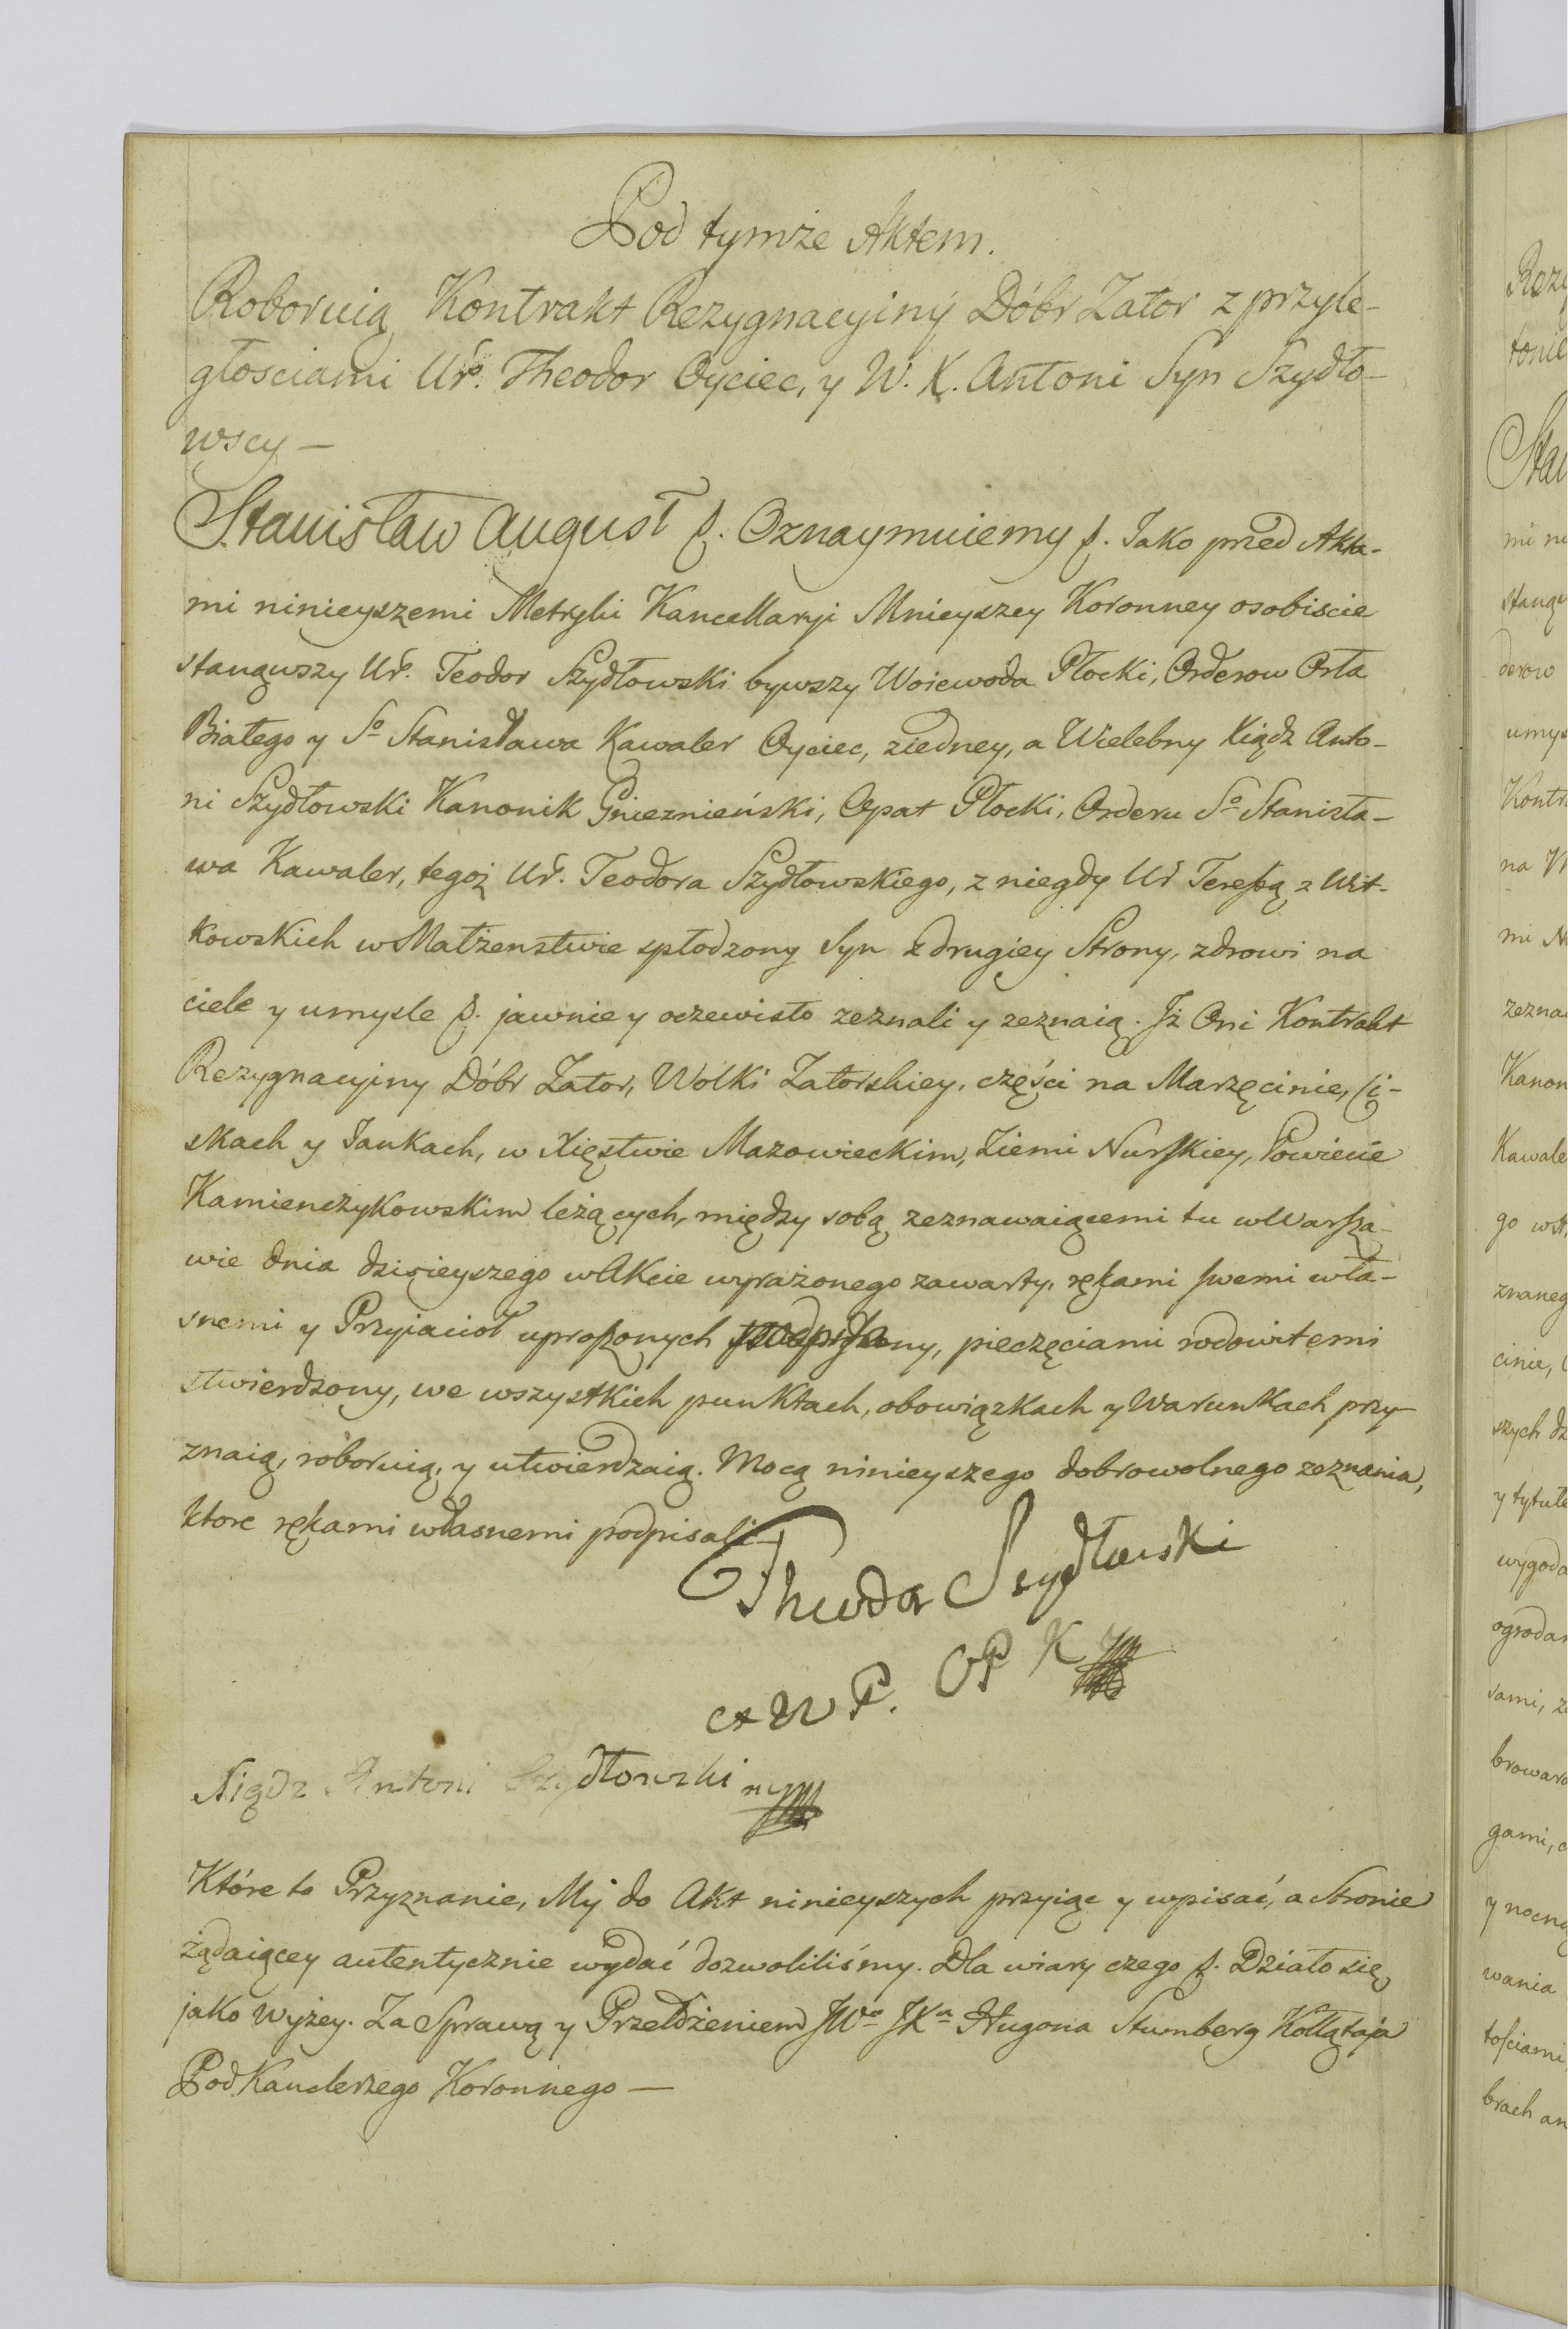 Pod tymże Aktem.
Roboruią Kontrakt Rezygnacyiny Dóbr Zator z przyle-
głosciami Uro. Theodor Oyciec, y W. X. Antoni Syn Szydło-
wscy —
Stanisław August p. Oznaymuiemy p. Jako przed Akta-
mi ninieyszemi Metryki Kancellaryi Mnieyszey Koronney osobiscie
stanąwszy Ur. Teodor Szydłowski bywszy Woiewoda Płocki, Orderow Orła
Białego y So Stanisława Kawaler Oyciec, ziedney, a Wielebny Xiądz Anto-
ni Szydłowski Kanonik Gnieznieński, Opat Płocki, Orderu So Stanisła-
wa Kawaler, tegoż Ur. Teodora Szydłowskiego, z niegdy Ur Teressą z Wit-
kowskich w Małżenstwie spłodzony Syn z drugiey Strony, zdrowi na
ciele y umysle p. jawnie y oczewisto zeznali y zeznaią. Jż Oni Kontrakt
Rezygnacyiny Dóbr Zator, Wolki Zatorskiey, części na Marzęcinie, Ci-
skach y Jankach, w Xięstwie Mazowieckim, Ziemi Nurskiey, Powiecie
Kamienczykowskim leżących, między sobą zeznawaiącemi tu w Warsza-
wie dnia dzisieyszego w Akcie wyrażonego zawarty, rękami swemi wła-
snemi y Przyiacioł uproszonych podpisany, pieczęciami rodowitemi
stwierdzony, we wszystkich punktach, obowiązkach y Warunkach przy-
znaią, roboruią, y utwierdzaią. Mocą ninieyszego dobrowolnego zeznania,
ktore rękami własnemi podpisali —
Theodor Szydłowski
W P. OP K
Xiądz Antoni Szydłowski mp
Które to Przyznanie, My do Akt ninieyszych przyiąc y wpisać, a Stronie
żądaiącey autentycznie wydać dozwoliliśmy. Dla wiary czego p. Działo się
jako wyżey. Za Sprawą y Przełożeniem JWo JXa Hugona Stumberg Kołłątaja
PodKanclerzego Koronnego —